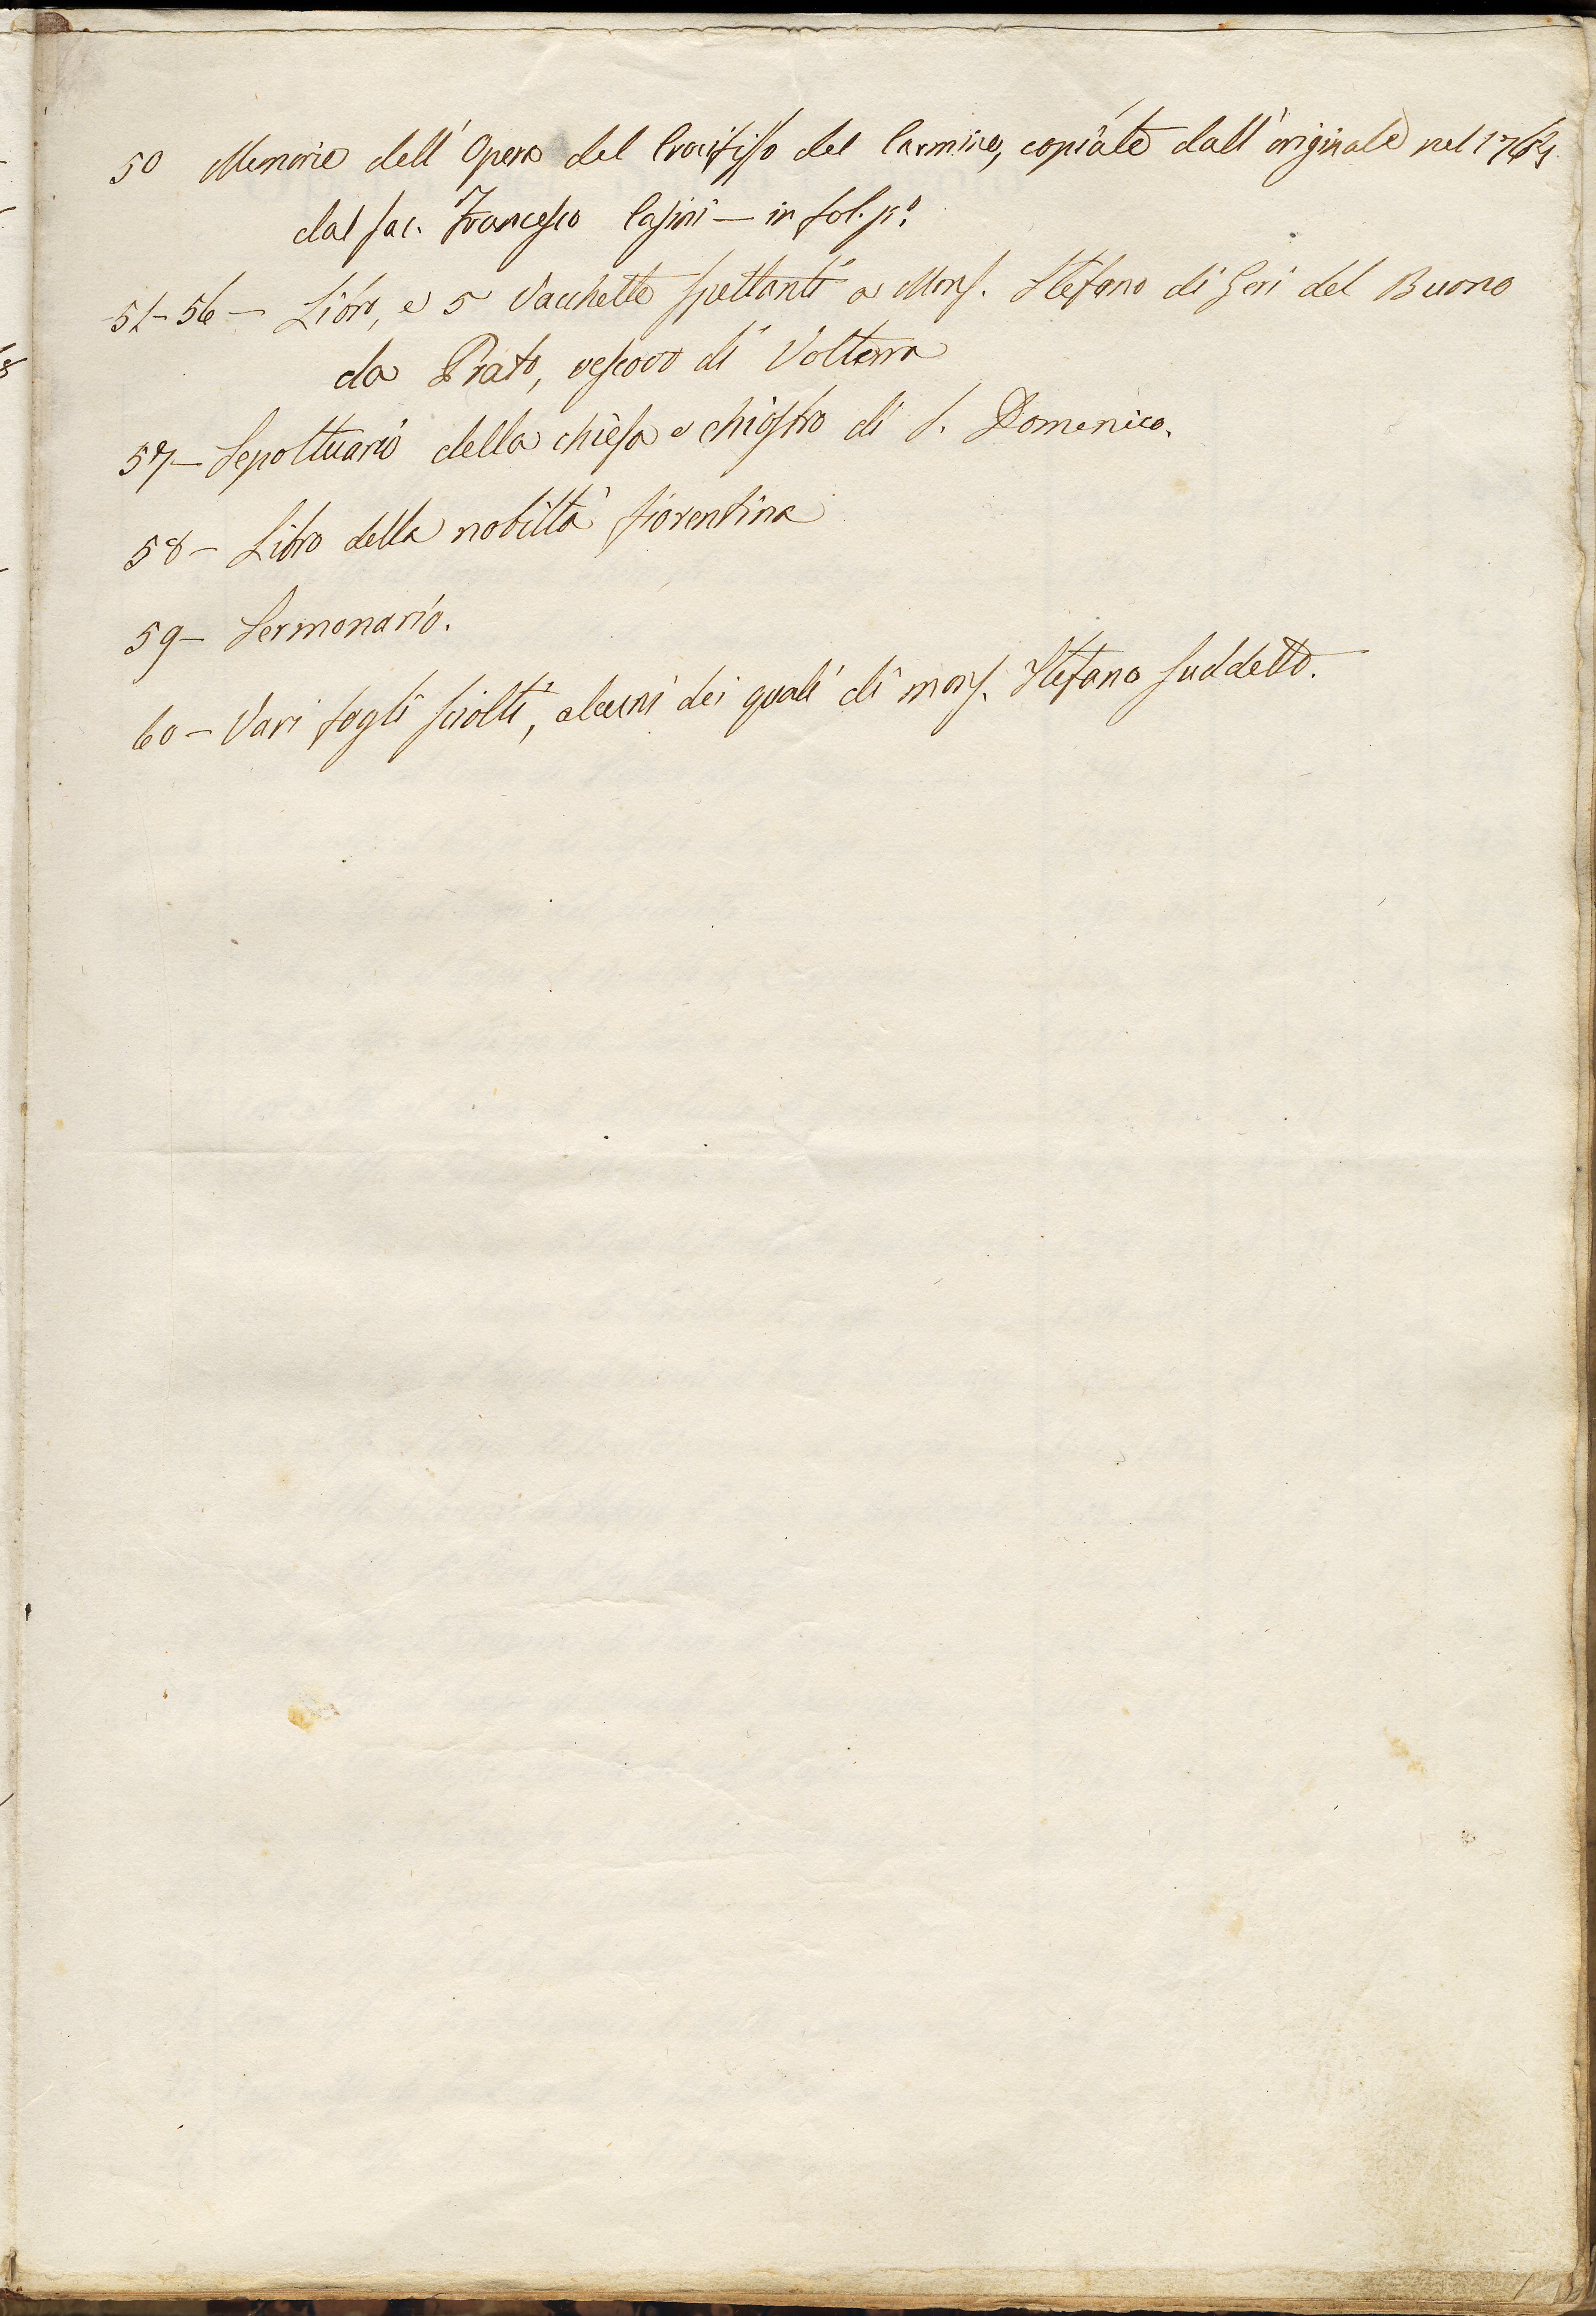 50 Memorie dell'Opera del Crocifisso del Carmine, copiate dall'originale nel
dal sac. Francesco Casini — in fol. p.º
51-56 — Libro, e 5 Vacchette spettanti a Mons. Stefano di Geri del Buono
da Prato, vescovo di Volterra
57 — Sepoltuario della chiesa e chiostro di S. Domenico.
58 — Libro della nobiltà fiorentina
59 — Sermonario.
60 — Vari fogli sciolti, alcuni dei quali di mons. Stefano suddetto.